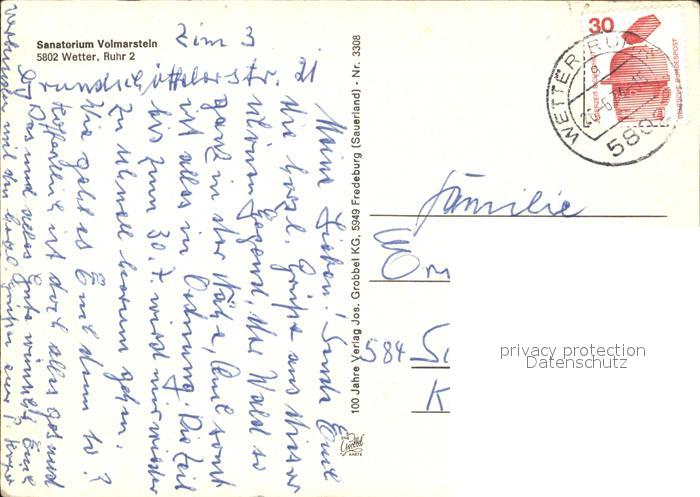 Sanatorium Volmarstein
5802 Wetter, Ruhr 2
Zim 3
Grundschöttelerstr. 21
Meine Lieben! Sende Euch
die herzl. Grüße aus dieser
schönen Gegend, der Wald so
ganz in der Nähe, und sonst
ist alles in Ordnung. Die Zeit
bis zum 30.7. wird mir wieder
zu schnell herum gehen.
Wie geht es Euch denn so?
Hoffentlich ist doch alles gesund
Das und alles Gute wünscht Euch
verbunden mit den herzl. Grüßen
100 Jahre Verlag Jos. Grobbel KG, 5949 Fredeburg (Sauerland) - Nr. 3308
30
DEUTSCHE BUNDESPOST
WETTER, RUHR
5802
Familie
584
K
privacy protection
Datenschutz